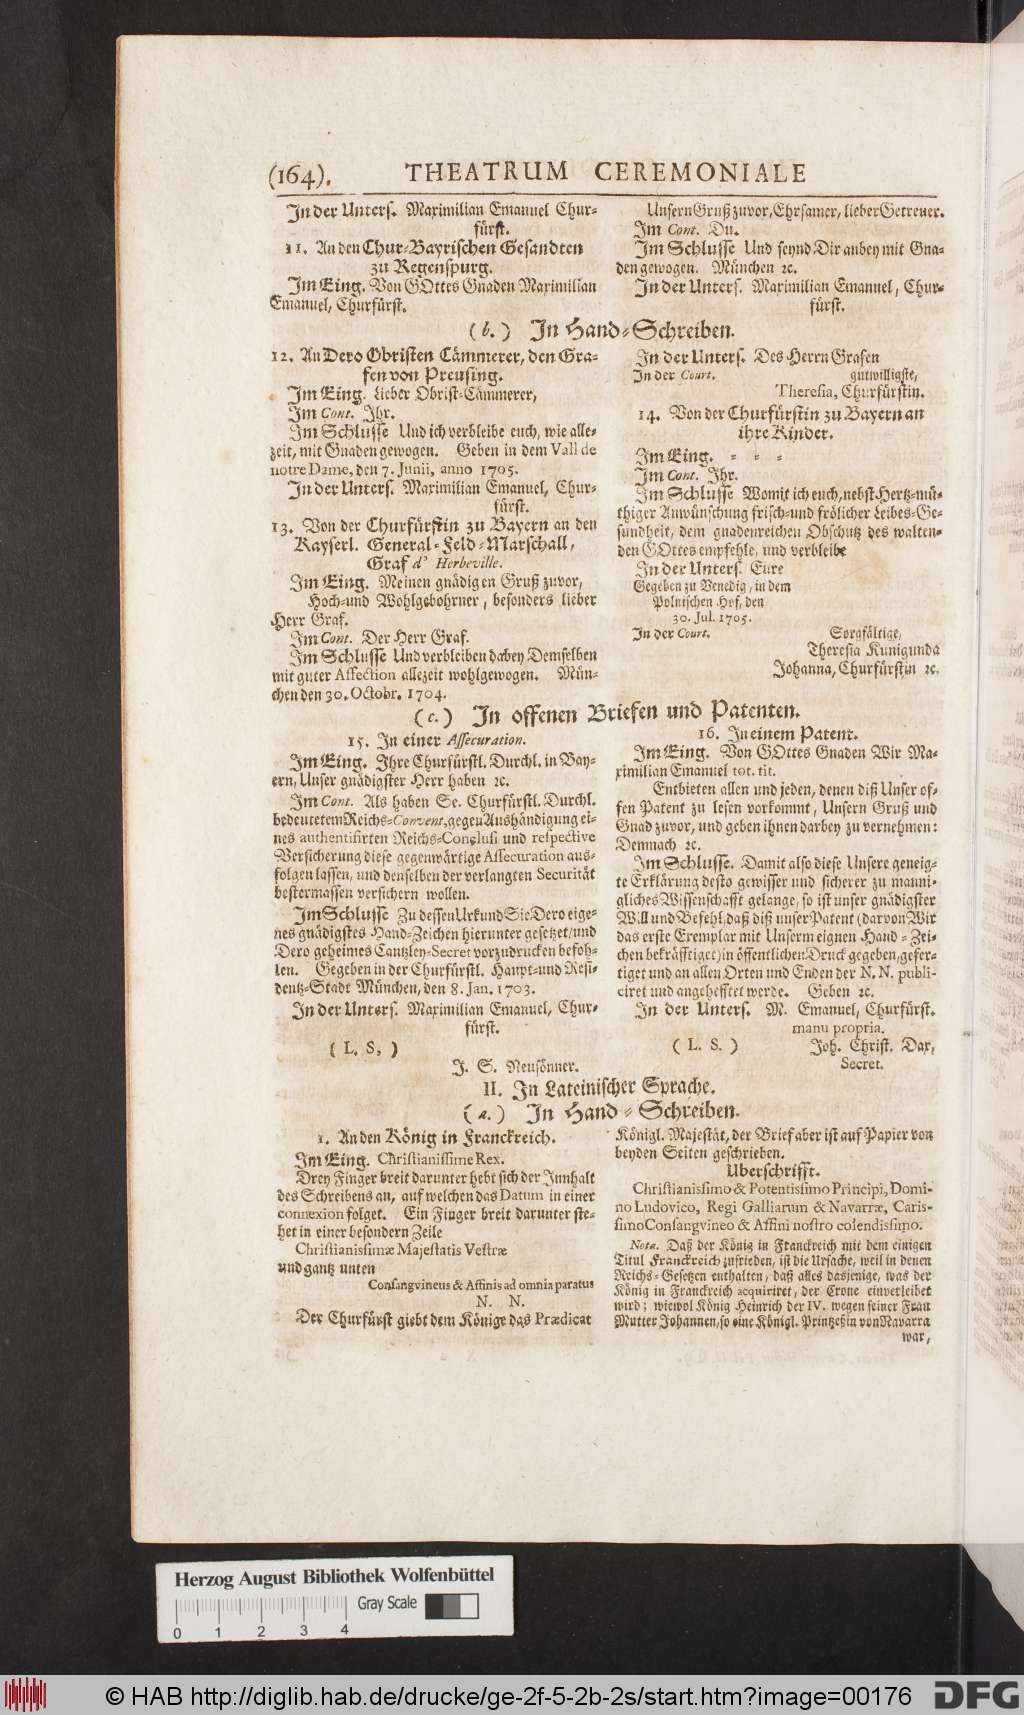 (164). THEATRUM CEREMONIALE
In der Unters. Maximilian Emanuel Chur-
fürst.
11. An den Chur-Bayrischen Gesandten
zu Regenspurg.
Im Eing. Von GOttes Gnaden Maximilian
Emanuel, Churfürst.
Unsern Gruß zuvor, Ehrsamer, lieber Getreuer.
Im Cont. Du.
Im Schlusse Und seynd Dir anbey mit Gna-
den gewogen. München ꝛc.
In der Unters. Maximilian Emanuel, Chur-
fürst.
(b.) In Hand-Schreiben.
12. An Dero Obristen Cämmerer, den Gra-
fen von Preusing.
Im Eing. Lieber Obrist-Cämmerer,
Im Cont. Ihr.
Im Schlusse Und ich verbleibe euch, wie alle-
zeit, mit Gnaden gewogen. Geben in dem Vall de
notre Dame, den 7. Junii, anno 1705.
In der Unters. Maximilian Emanuel, Chur-
fürst.
13. Von der Churfürstin zu Bayern an den
Kayserl. General-Feld-Marschall,
Graf d' Herbeville.
Im Eing. Meinen gnädigen Gruß zuvor,
Hoch-und Wohlgebohrner, besonders lieber
Herr Graf.
Im Cont. Der Herr Graf.
Im Schlusse Und verbleiben dabey Demselben
mit guter Affection allezeit wohlgewogen. Mün-
chen den 30. Octobr. 1704.
In der Unters. Des Herrn Grafen
In der Court. gutwilligste,
Theresia, Churfürstin.
14. Von der Churfürstin zu Bayern an
ihre Kinder.
Im Eing. - - -
Im Cont. Ihr.
Im Schlusse Womit ich euch, nebst Hertz-mü-
thiger Anwünschung frisch-und frölicher Leibes-Ge-
sundheit, dem gnadenreichen Obschutz des walten-
den GOttes empfehle, und verbleibe
In der Unters. Eure
Gegeben zu Venedig, in dem
Polnischen Hof, den
30. Jul. 1705.
In der Court. Sorgfältige,
Theresia Kunigunda
Johanna, Churfürstin ꝛc.
(c.) In offenen Briefen und Patenten.
15. In einer Assecuration.
Im Eing. Ihre Churfürstl. Durchl. in Bay-
ern, Unser gnädigster Herr haben ꝛc.
Im Cont. Als haben Se. Churfürstl. Durchl.
bedeutetem Reichs-Convent, gegen Aushändigung ei-
nes authentisirten Reichs-Conclusi und respective
Versicherung diese gegenwärtige Assecuration aus-
folgen lassen, und denselben der verlangten Securität
bestermassen versichern wollen.
Im Schlusse Zu dessen Urkund Sie Dero eige-
nes gnädigstes Hand-Zeichen hierunter gesetzet/und
Dero geheimes Cantzley-Secret vorzudrucken befoh-
len. Gegeben in der Churfürstl. Haupt-und Resi-
dentz-Stadt München, den 8. Jan. 1703.
In der Unters. Maximilian Emanuel, Chur-
fürst.
(L. S,)
J. S. Neusönner.
16. In einem Patent.
Im Eing. Von GOttes Gnaden Wir Ma-
ximilian Emanuel tot. tit.
Entbieten allen und jeden, denen diß Unser of-
fen Patent zu lesen vorkommt, Unsern Gruß und
Gnad zuvor, und geben ihnen darbey zu vernehmen:
Demnach ꝛc.
Im Schlusse. Damit also diese Unsere geneig-
te Erklärung desto gewisser und sicherer zu manni-
gliches Wissenschafft gelange, so ist unser gnädigster
Will und Befehl, daß diß unser Patent (darvon Wir
das erste Exemplar mit Unserm eignen Hand-Zei-
chen bekräfftiget) in öffentlichen Druck gegeben, gefer-
tiget und an allen Orten und Enden der N. N. publi-
ciret und angehefftet werde. Geben ꝛc.
In der Unters. M. Emanuel, Churfürst.
manu propria.
(L. S.) Joh. Christ. Dax,
Secret.
II. In Lateinischer Sprache.
(a.) In Hand-Schreiben.
1. An den König in Franckreich.
Im Eing. Christianissime Rex.
Drey Finger breit darunter hebt sich der Innhalt
des Schreibens an, auf welchen das Datum in einer
connexion folget. Ein Finger breit darunter ste-
het in einer besondern Zeile
Christianissimæ Majestatis Vestræ
und gantz unten
Consangvineus & Affinis ad omnia paratus
N. N.
Der Churfürst giebt dem Könige das Prædicat
Königl. Majestät, der Brief aber ist auf Papier von
beyden Seiten geschrieben.
Uberschrifft.
Christianissimo & Potentissimo Principi, Domi-
no Ludovico, Regi Galliarum & Navarræ, Caris-
simo Consangvineo & Affini nostro colendissimo.
Nota. Daß der König in Franckreich mit dem einigen
Titul Franckreich zufrieden, ist die Ursache, weil in denen
Reichs-Gesetzen enthalten, daß alles dasjenige, was der
König in Franckreich acquiriret, der Crone einverleibet
wird; wiewol König Heinrich der IV. wegen seiner Frau
Mutter Johannen, so eine Königl. Printzeßin von Navarra
war,
Herzog August Bibliothek Wolfenbüttel
Gray Scale
0 1 2 3 4
© HAB http://diglib.hab.de/drucke/ge-2f-5-2b-2s/start.htm?image=00176
DFG